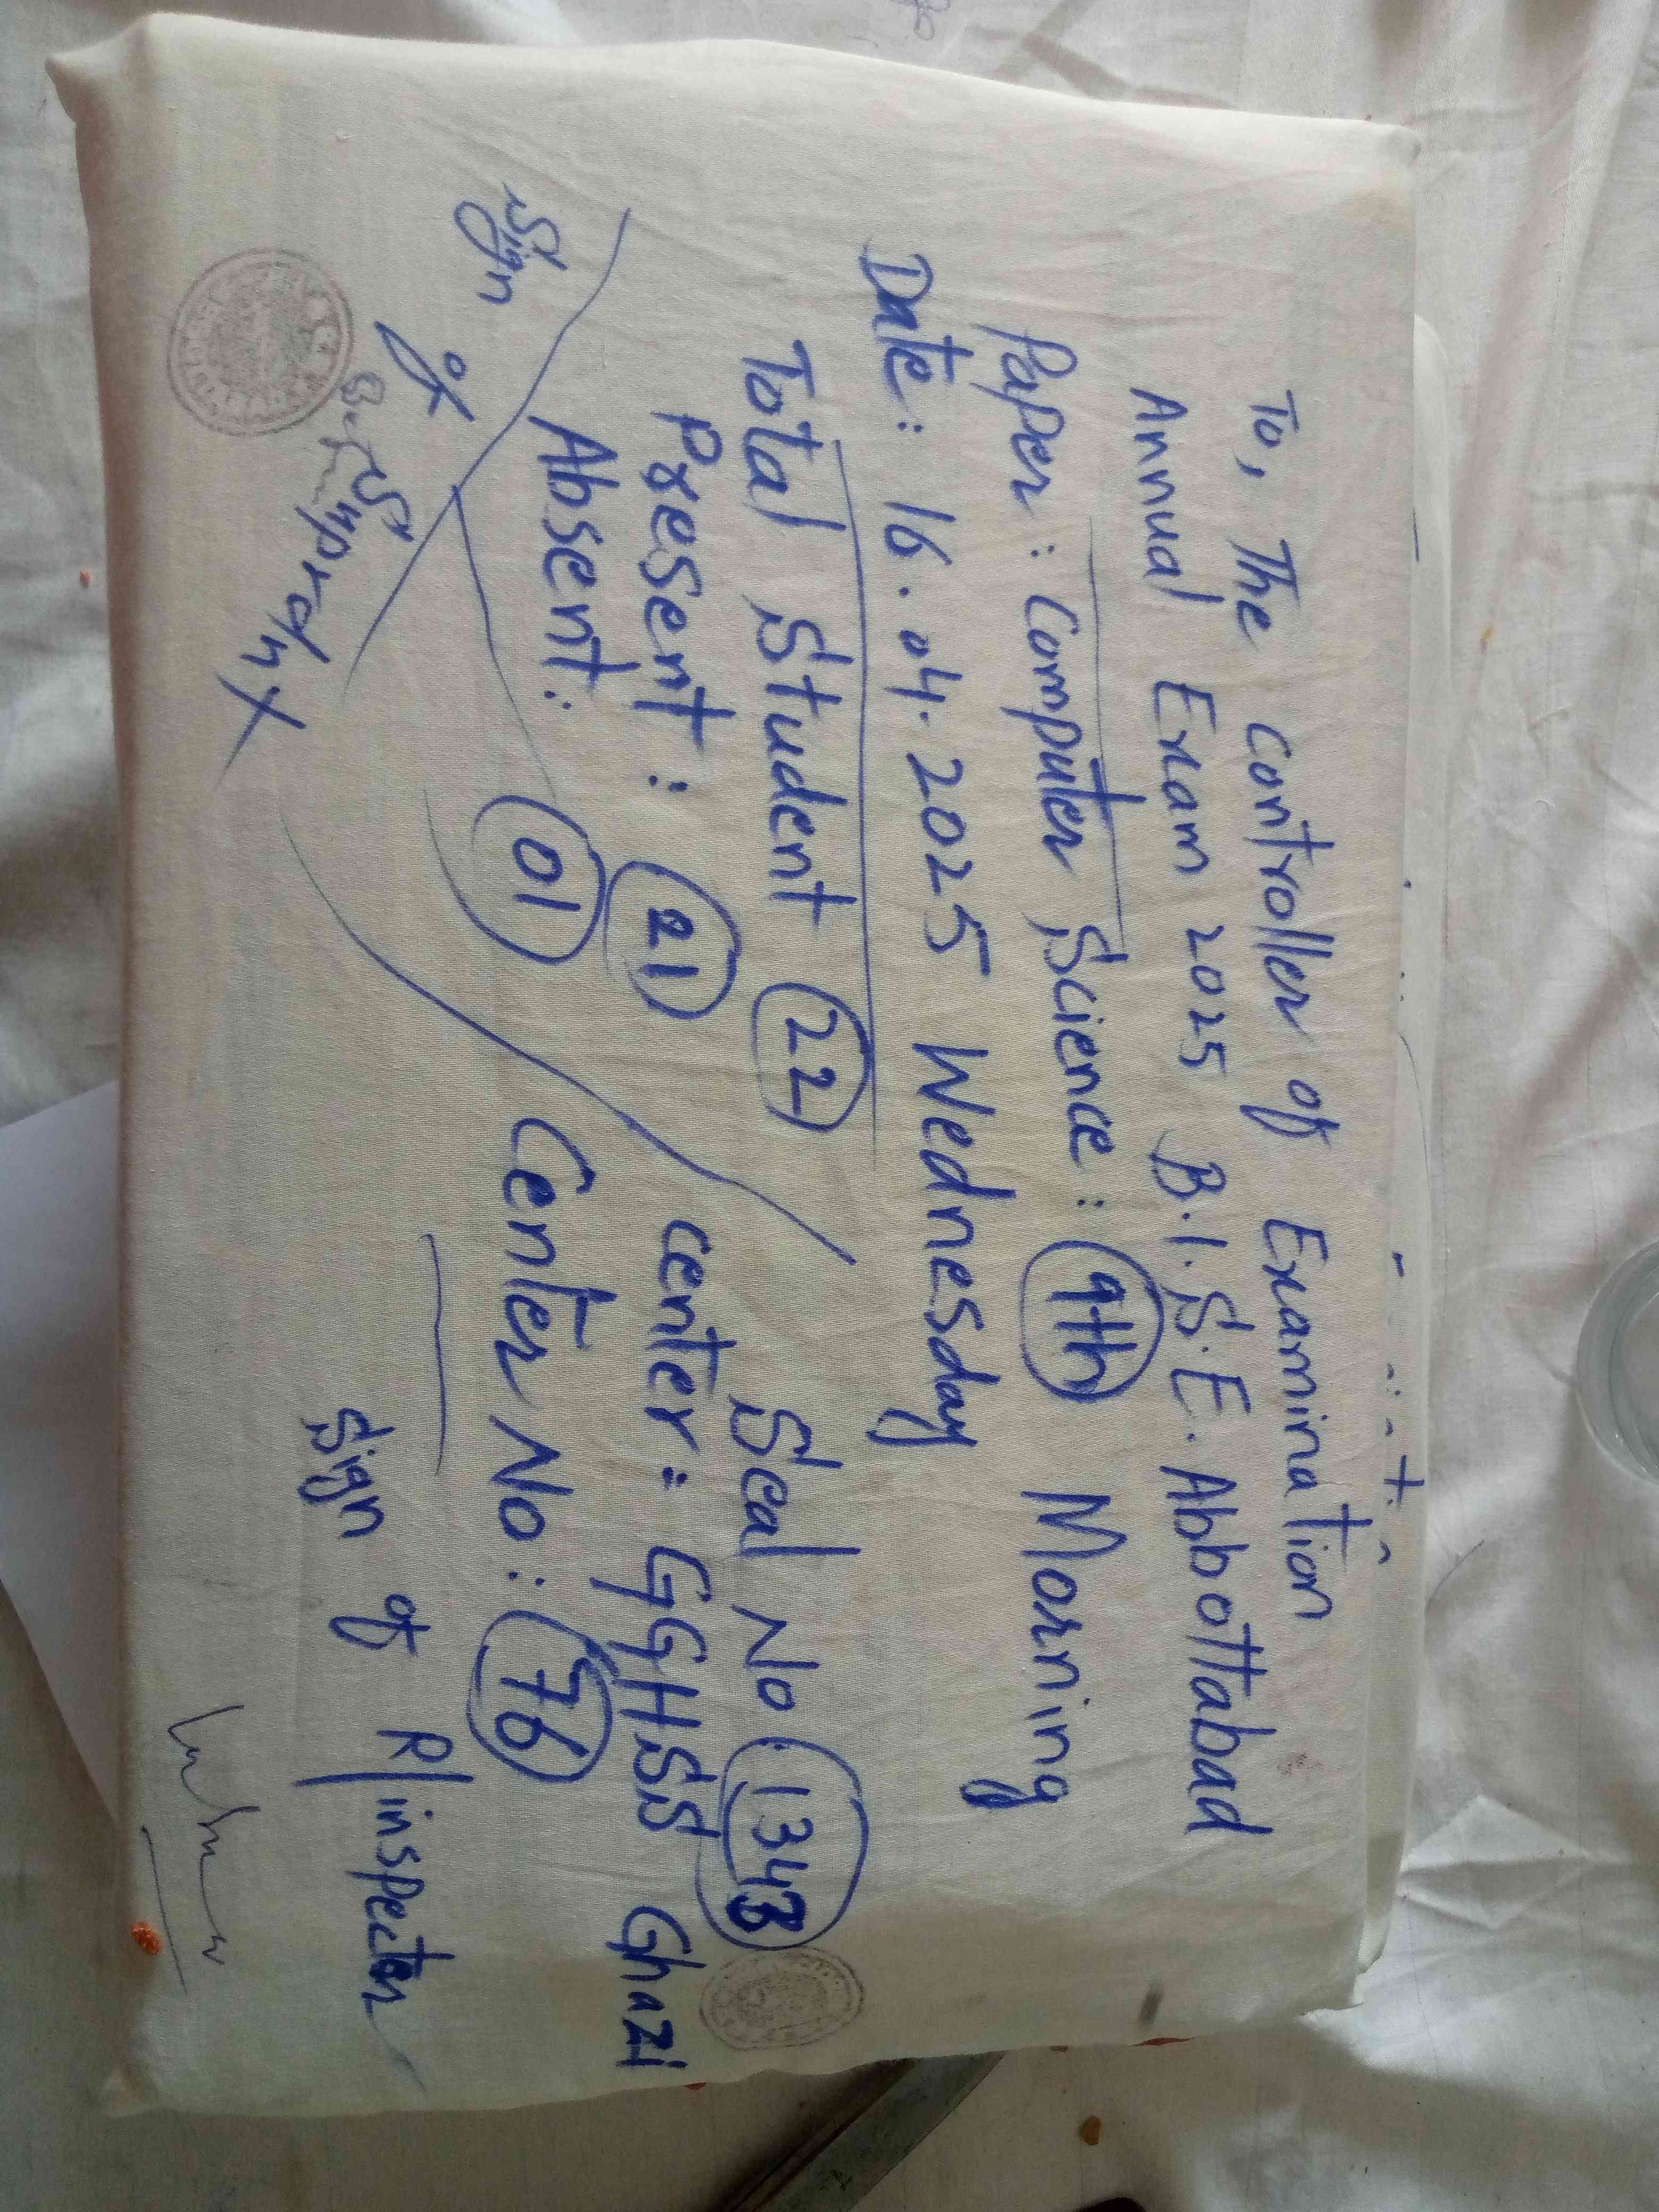 To, The Controller of Examination
Annual Exam 2025 B.I.S.E. Abbottabad
Paper: Computer Science: 9th Morning
Date: 16.04.2025 Wednesday
Total Student 22
Present: 21
Absent: 01
Seal No. 1343
center: GGHSS Ghazi
Center No: 76
Sign of
Sign of R/inspector